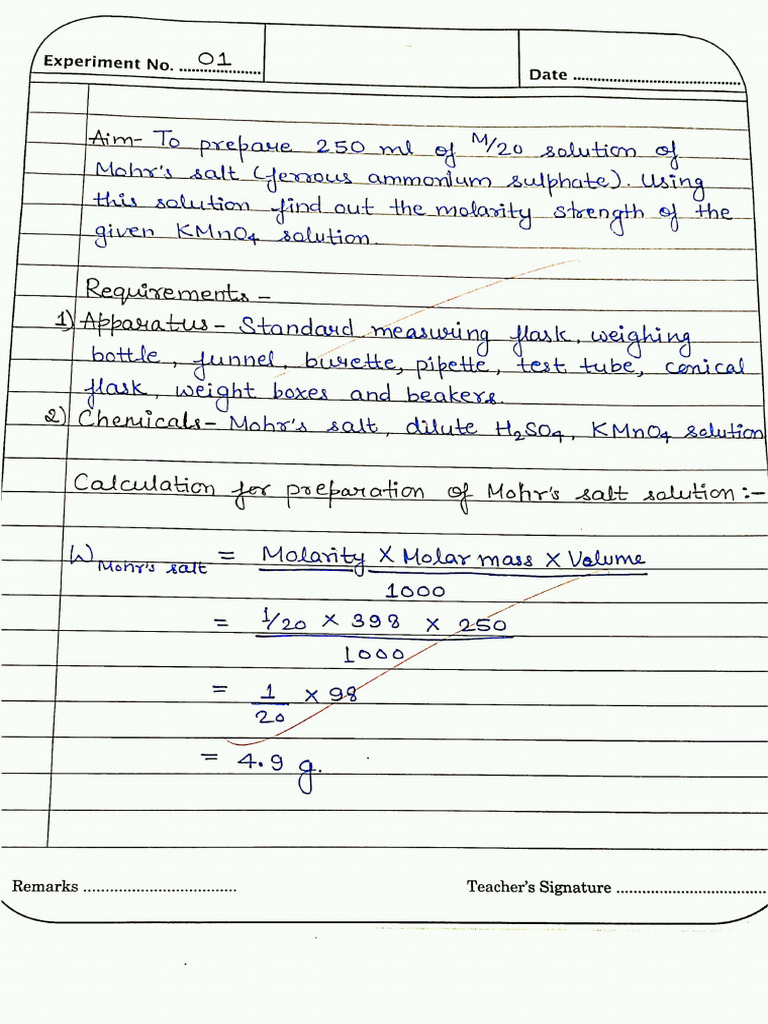 Experiment No. ....01....
Date ........................................
Aim- To prepare 250 ml of M/20 solution of
Mohr's salt (ferrous ammonium sulphate). Using
this solution find out the molarity strength of the
given KMnO4 solution.
Requirements -
1) Apparatus - Standard measuring flask, weighing
bottle, funnel, burette, pipette, test tube, conical
flask, weight boxes and beakers.
2) Chemicals - Mohr's salt, dilute H2SO4, KMnO4 solution
Calculation for preparation of Mohr's salt solution :-
W Mohr's salt = Molarity X Molar mass X Volume
1000
= 1/20 X 398 X 250
1000
= 1 X 98
20
= 4.9 g.
Remarks ...................................
Teacher's Signature ...................................